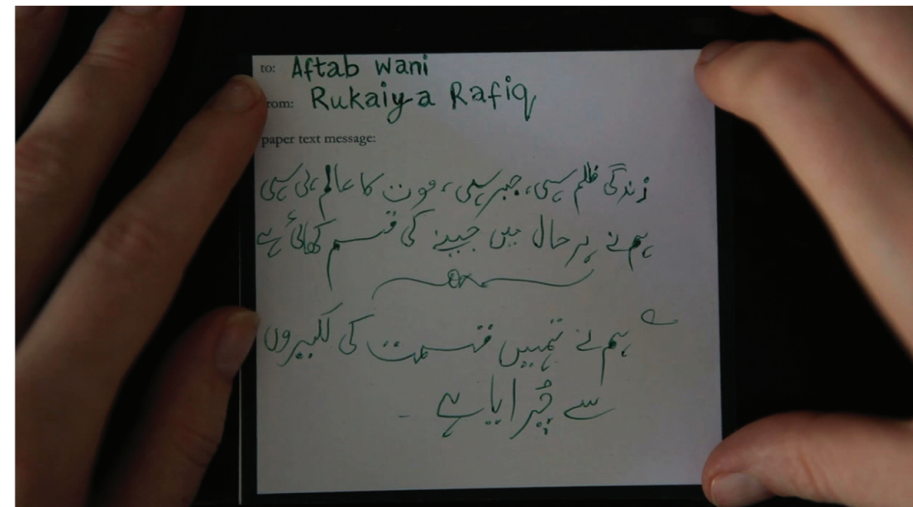 to: Aftab wani
from: Rukaiya Rafiq
paper text message:
زندگی ظلم سہی، جبر سہی، موت کا عالم ہی سہی
ہم نے ہر حال میں جینے کی قسم کھائی ہے
ہم نے تمہیں قسمت کی لکیروں
سے چُرایا ہے